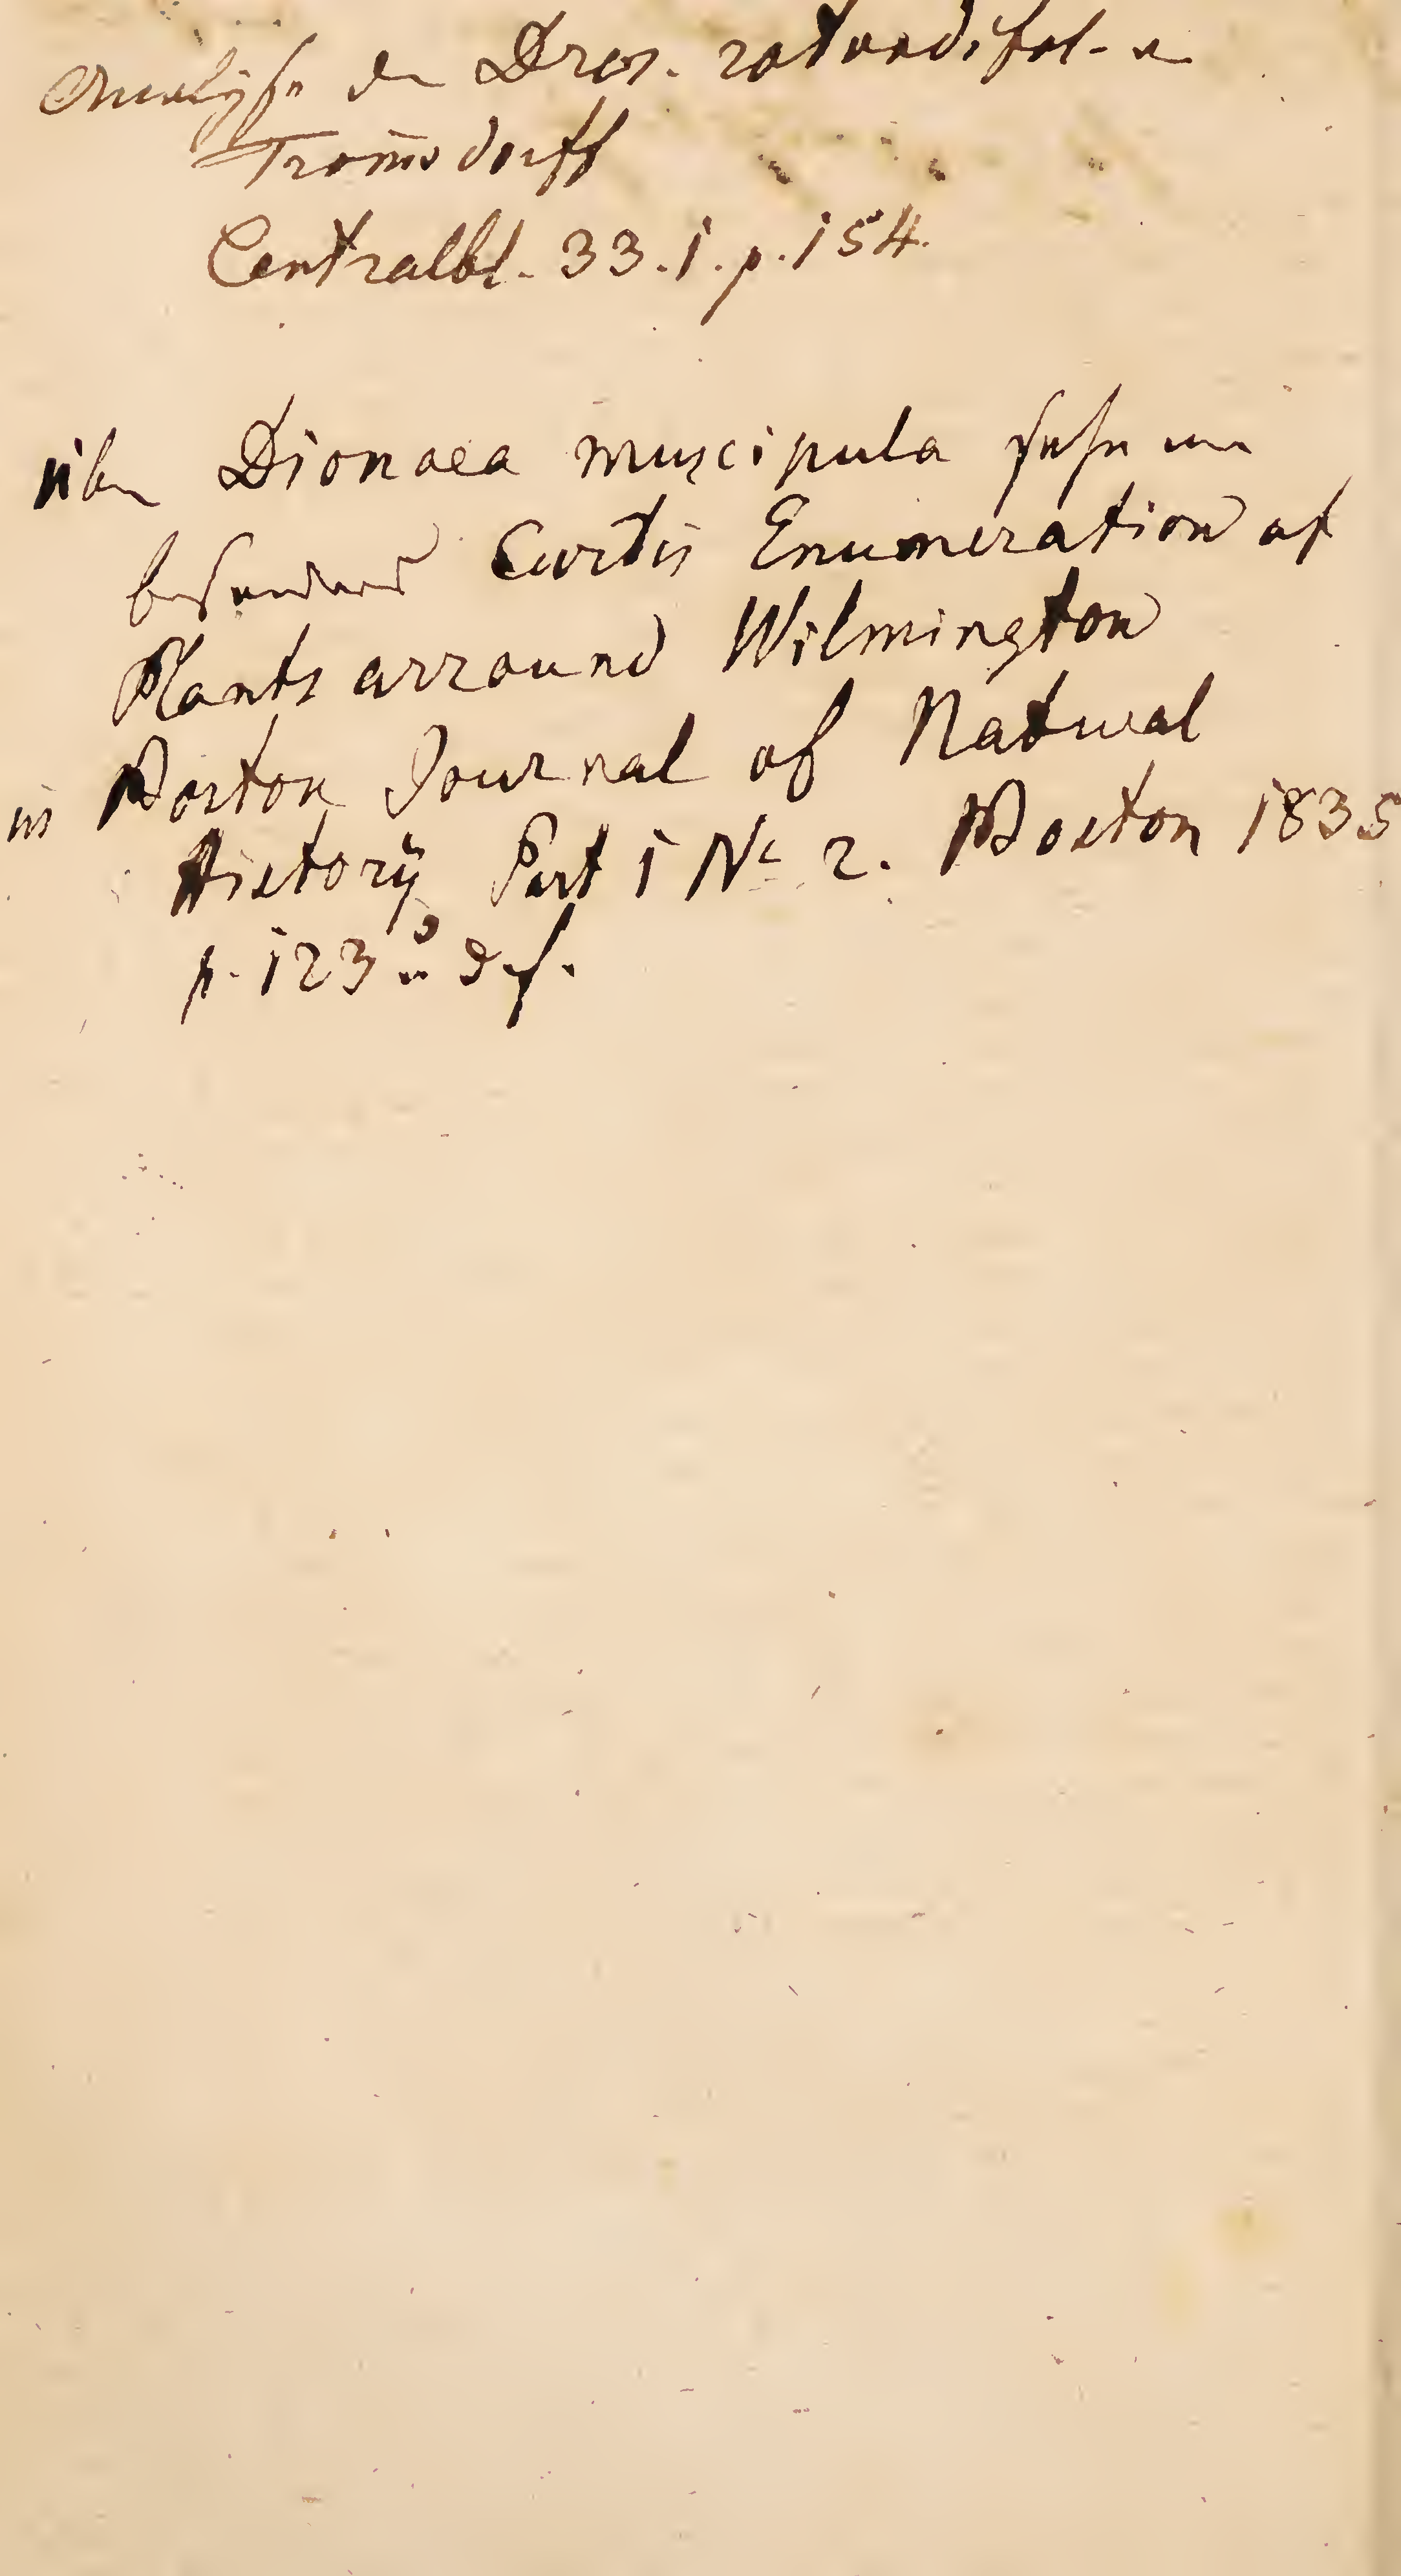 Analyse der Dros. rotundifol. v.
Tromsdorff
Centralbl. 33. 1. p. 154.
über Dionaea muscipula sehe man
besonders Curtis Enumeration of
Plants arround Wilmington
in Boston Journal of Natural
History Part 1 No 2. Boston 1835
p. 123 u. d. f.